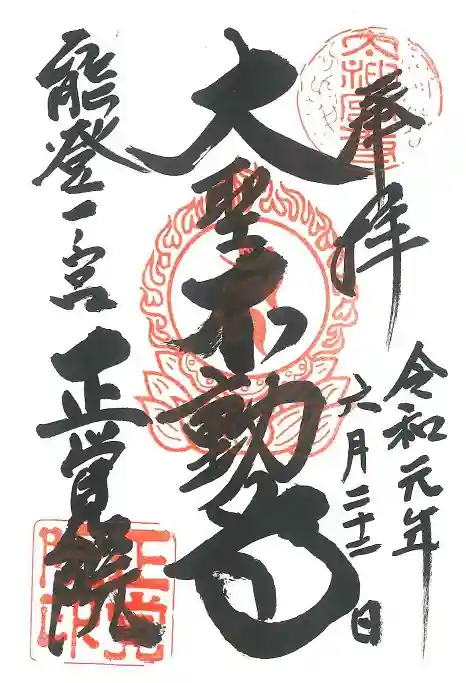 奉拝
令和元年
六月二十二日
大聖不動尊
能登一宮
正覚院
正覚院印